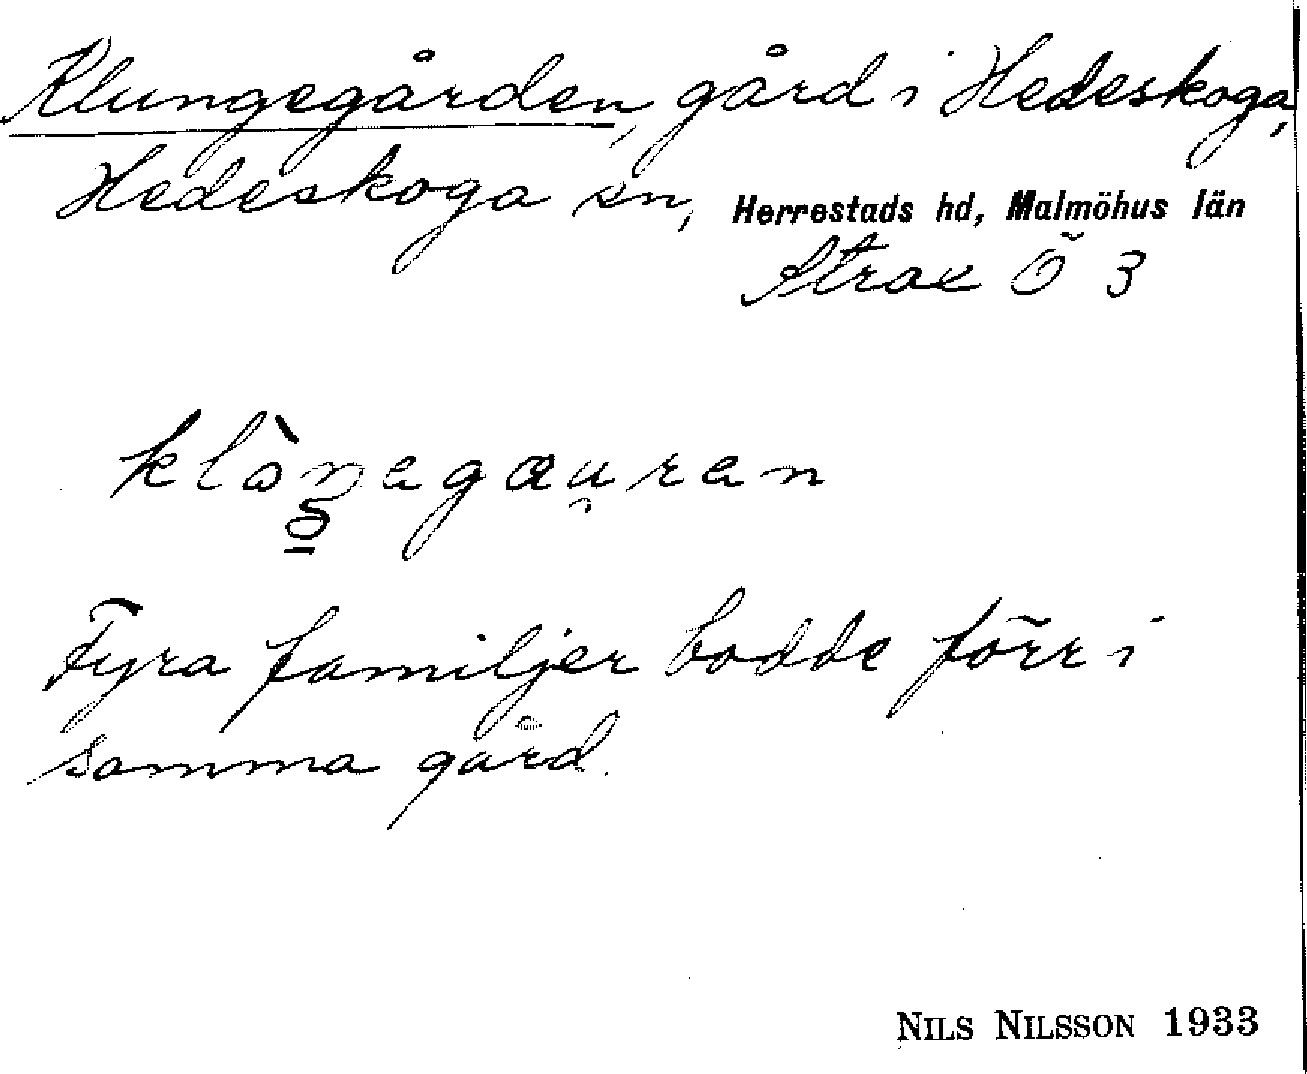 Klungegården, gård i Hedeskoga,
Hedeskoga sn, Herrestads hd, Malmöhus län
Strax Ö 3
Fyra familjer bodde förr i
samma gård.
NILS NILSSON 1933